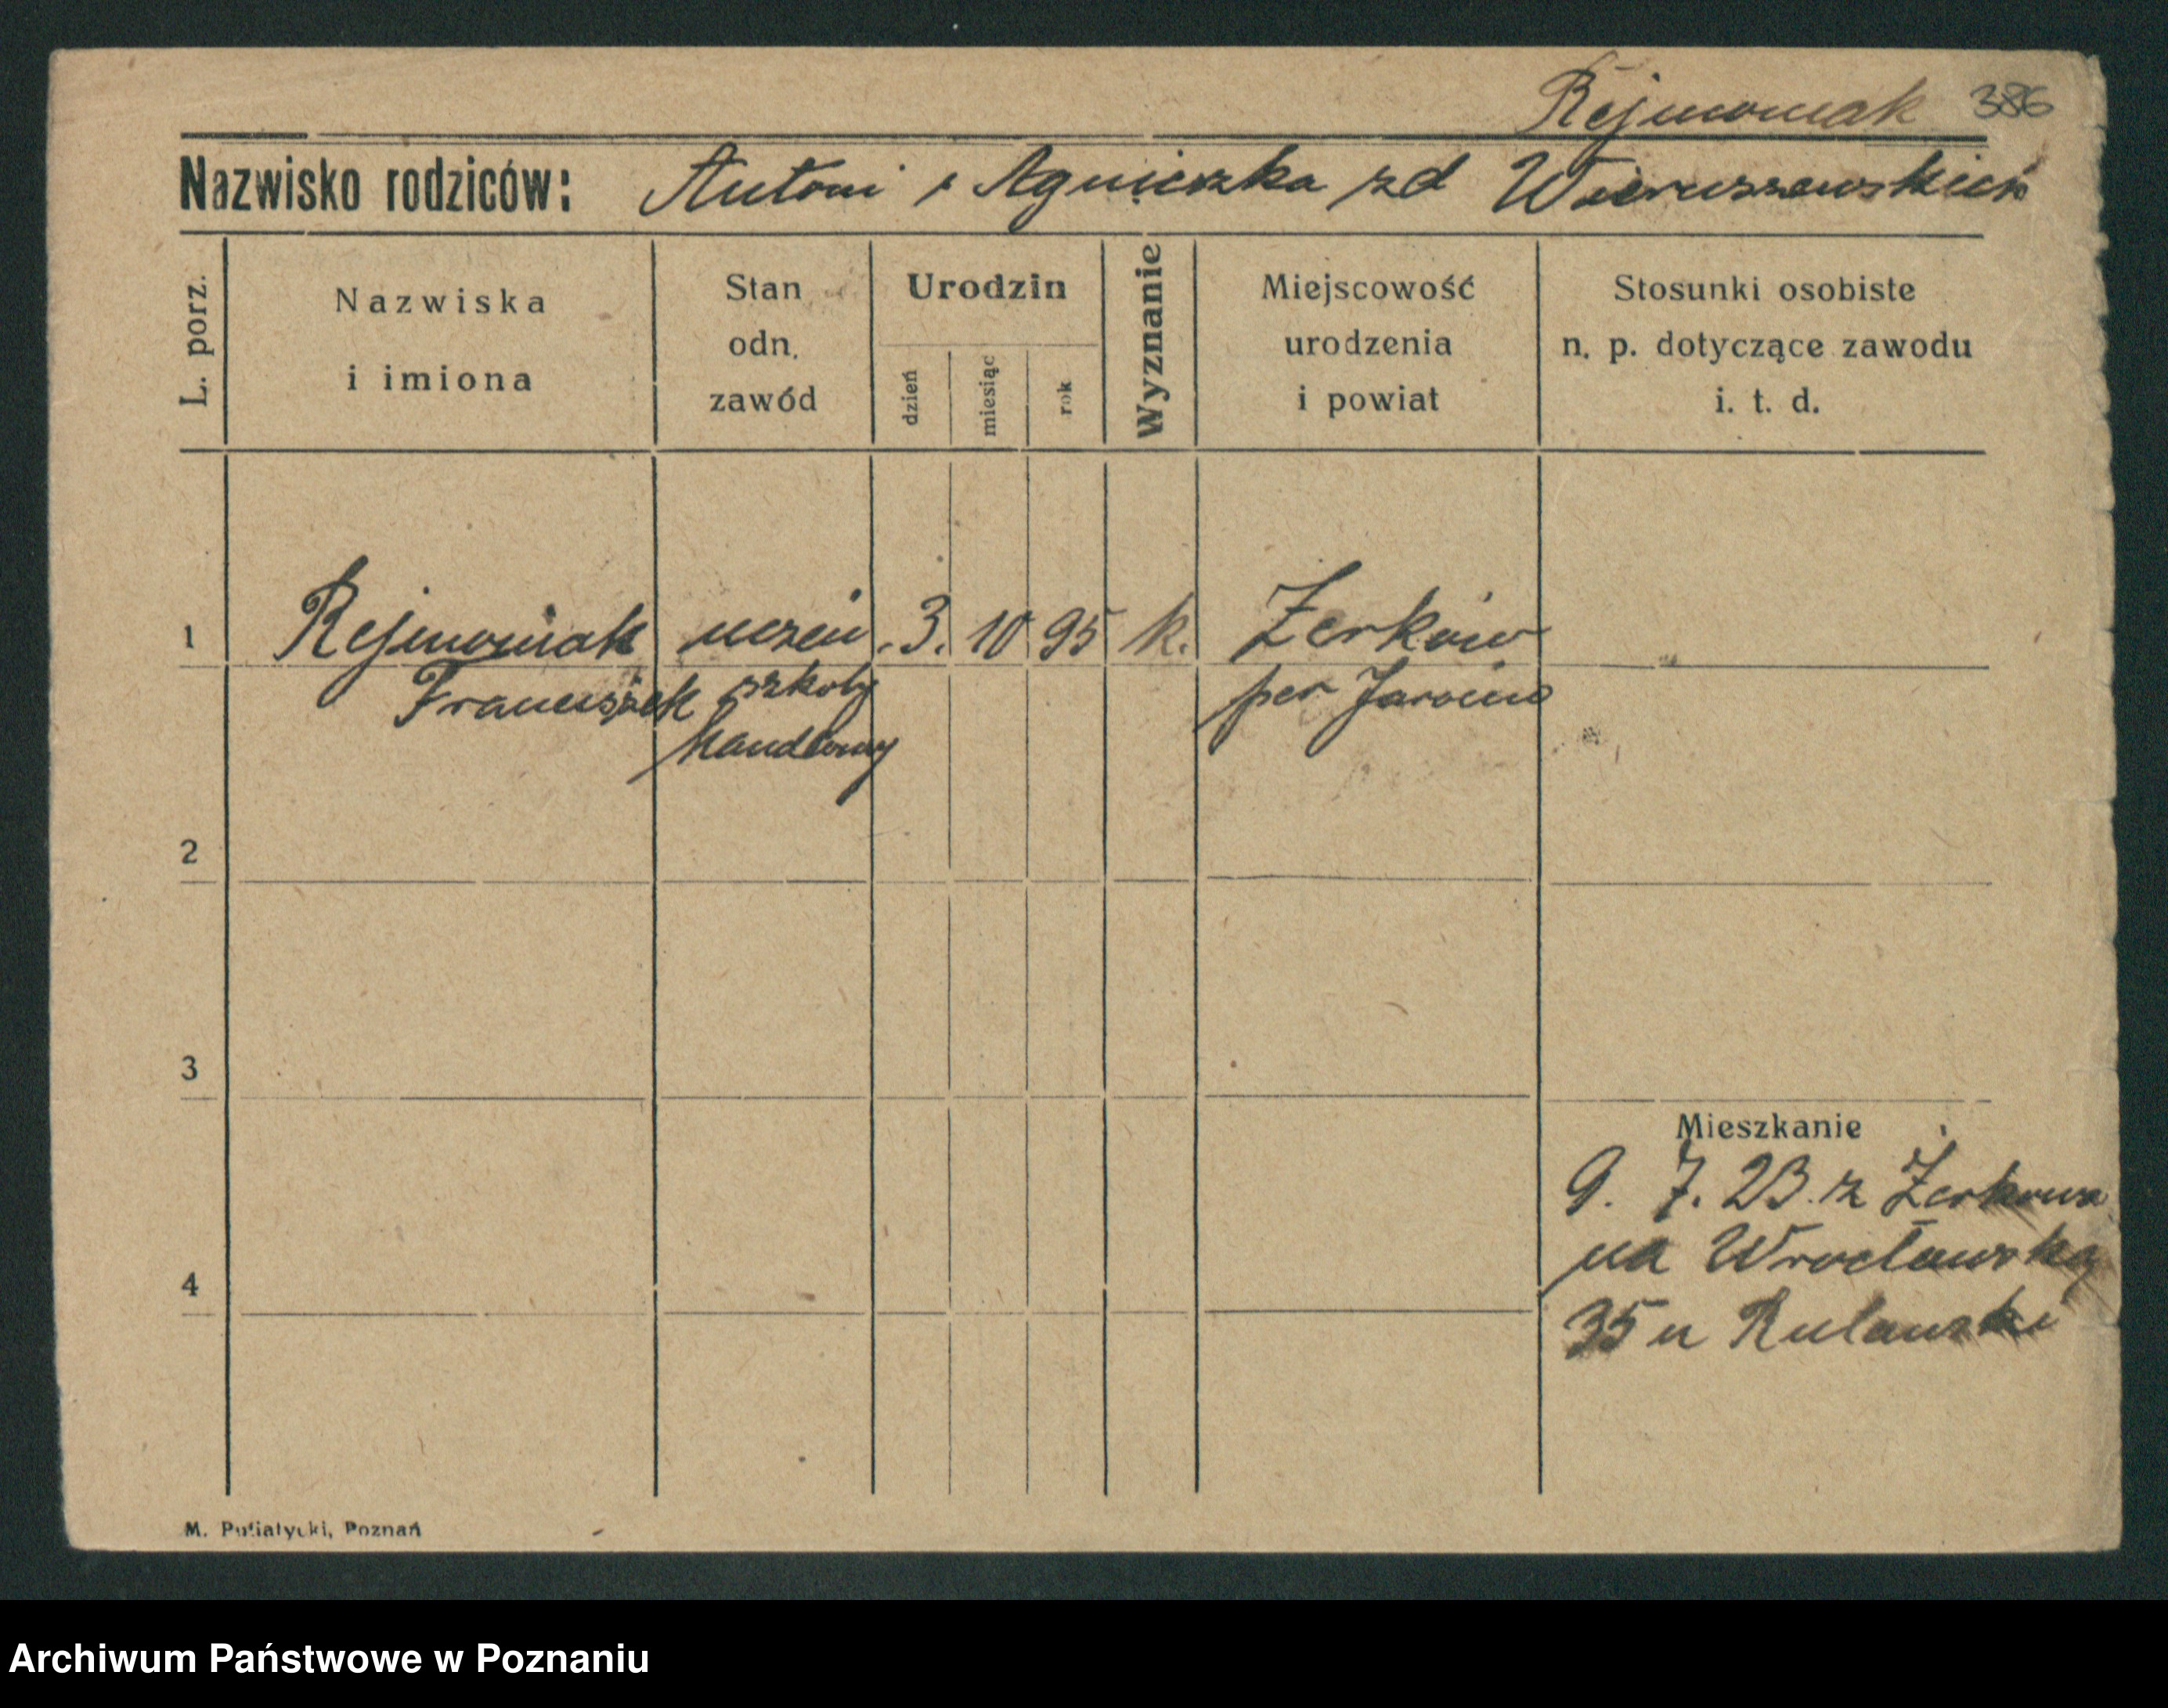 Rejmoniak 386
Nazwisko rodziców: Antoni i Agnieszka zd Wieruszewskich
L. porz.
Nazwiska
i imiona
Stan
odn.
zawód
Urodzin
dzień
miesiąc
rok
Wyznanie
Miejscowość
urodzenia
i powiat
Stosunki osobiste
n. p. dotyczące zawodu
i. t. d.
1 Rejmoniak uczeń 3. 10 95 k. Żerków
Franciszek szkoły per Jarocino
handlowy
2
3
Mieszkanie
9. 7. 23. z Żerkowa
na Wrocławską
4
35 u
M. Putiatycki, Poznań
Archiwum Państwowe w Poznaniu